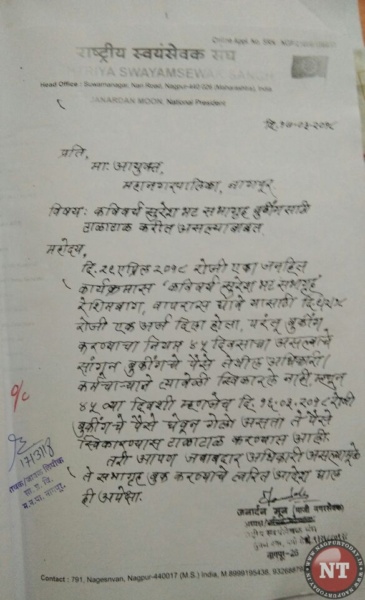 राष्ट्रीय स्वयंसेवक संघ
RASHTRIYA SWAYAMSEWAK SANGH
Head Office : Suwarnanagar, Nari Road, Nagpur-440 026 (Maharashtra)
JANARDAN MOON, National President
दि. १७-०३-२०१८
प्रति,
मा. आयुक्त,
महानगरपालिका, नागपूर
विषय: कविवर्य सुरेश भट सभागृह बुकींगसाठी
टाळाटाळ करीत असल्याबाबत
महोदय,
दि. २८ एप्रिल २०१८ रोजी एका जनहित
कार्यक्रमास "कविवर्य सुरेश भट सभागृह
रेशिमबाग, वापरास यासाठी
रोजी एक अर्ज दिला होता, परंतु बुकींग
करण्याचा नियम ४५ दिवसाचा असल्याचे
सांगून बुकींगचे पैसे तेथील अधिकारी/
कर्मचाऱ्याने त्यावेळी स्विकारले नाही, म्हणून
४५ व्या दिवशी म्हणजेच दि. १६.०३.२०१८ रोजी
बुकींगचे पैसे घेवून गेलो असता ते पैसे
स्विकारण्यास टाळाटाळ करण्यात आली.
तरी आपण जबाबदार अधिकारी असल्यामुळे
ते सभागृह बुक करण्याचे त्वरित आदेश द्याल
ही अपेक्षा.
17/3/18
जनार्दन मून (माजी नगरसेवक)
नागपूर-26
NT
Contact : 791, Nagesnvan, Nagpur-440017 (M.S.) India, M.8999195438,